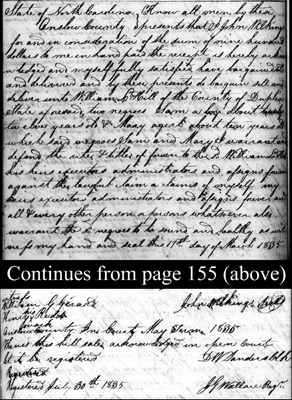 State of North Carolina Know all men by these
Onslow County presents that I John Wilkins
for and in consideration of the sum of nine hundred
dollars to me in hand paid the receipt is hereby acknow
ledged and myself fully satisfied have bargained sold
and delivered and by these presents do bargain sell and
deliver unto William Hall of the County of Duplin
State aforesaid two negroes Sam a boy about
twelve years old & Mary aged about ten years
which said negroes Sam and Mary I warrant &
defend the rite & title of forever to the sd William Hall
his heirs executors administrators and assigns forever
against the lawful claim or claims of myself my
heirs executors administrators and assigns forever and
all & every other person or persons whatsoever also
warrant the sd negroes to be sound and healthy as wit
ness my hand and seal this 17th day of March 1835
Continues from page 155 (above)
John Wilkings (seal)
County Court May Term 1835
Then was this bill sale acknowledged in open Court
Let it be registered
D W Sanders Clk
Registered July 30th 1835
J G Wallace Regr